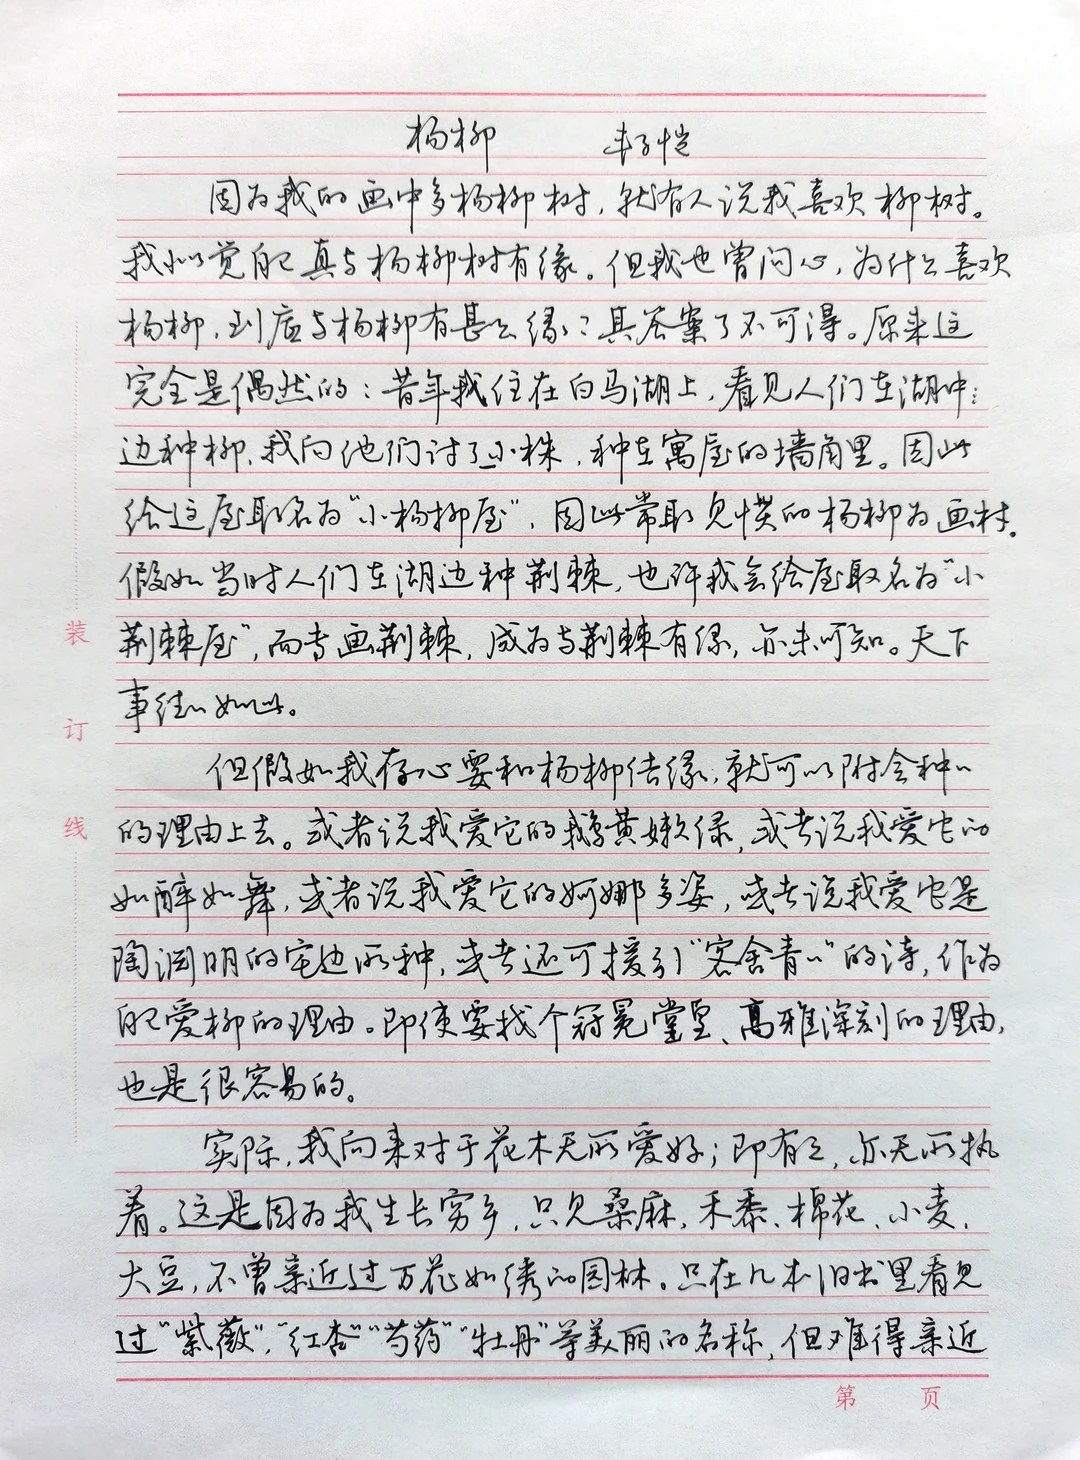 杨柳 丰子恺
因为我的画中多杨柳树，就有人说我喜欢柳树。
我似觉自己真与杨柳树有缘。但我也曾问心，为什么喜欢
杨柳，到底与杨柳有甚么缘？其答案了不可得。原来这
完全是偶然的：昔年我住在白马湖上，看见人们在湖中
边种柳，我向他们讨了小株，种在寓屋的墙角里。因此
给这屋取名为“小杨柳屋”，因此常取见惯的杨柳为画材。
假如当时人们在湖边种荆棘，也许我会给屋取名为“小
荆棘屋”，而专画荆棘，成为与荆棘有缘，亦未可知。天下
事往往如此。
但假如我存心要和杨柳结缘，就可以附会种种
的理由上去。或者说我爱它的鹅黄嫩绿，或者说我爱它的
如醉如舞，或者说我爱它的婀娜多姿，或者说我爱它是
陶渊明的宅边所种，或者还可援引“客舍青青”的诗，作为
自己爱柳的理由。即使要找个冠冕堂皇、高雅深刻的理由，
也是很容易的。
实际，我向来对于花木无所爱好；即有之，亦无所执
着。这是因为我生长穷乡，只见桑麻，禾黍、棉花、小麦、
大豆，不曾亲近过万花如绣的园林。只在几本旧书里看见
过“紫薇”，“红杏”“芍药”“牡丹”等美丽的名称，但难得亲近
装
订
线
第 页